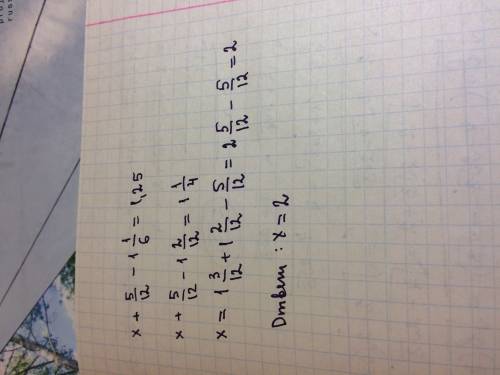 x + 5/12 - 1 1/6 = 1,25
x + 5/12 - 1 2/12 = 1 1/4
x = 1 3/12 + 1 2/12 - 5/12 = 2 5/12 - 5/12 = 2
Ответ: x = 2